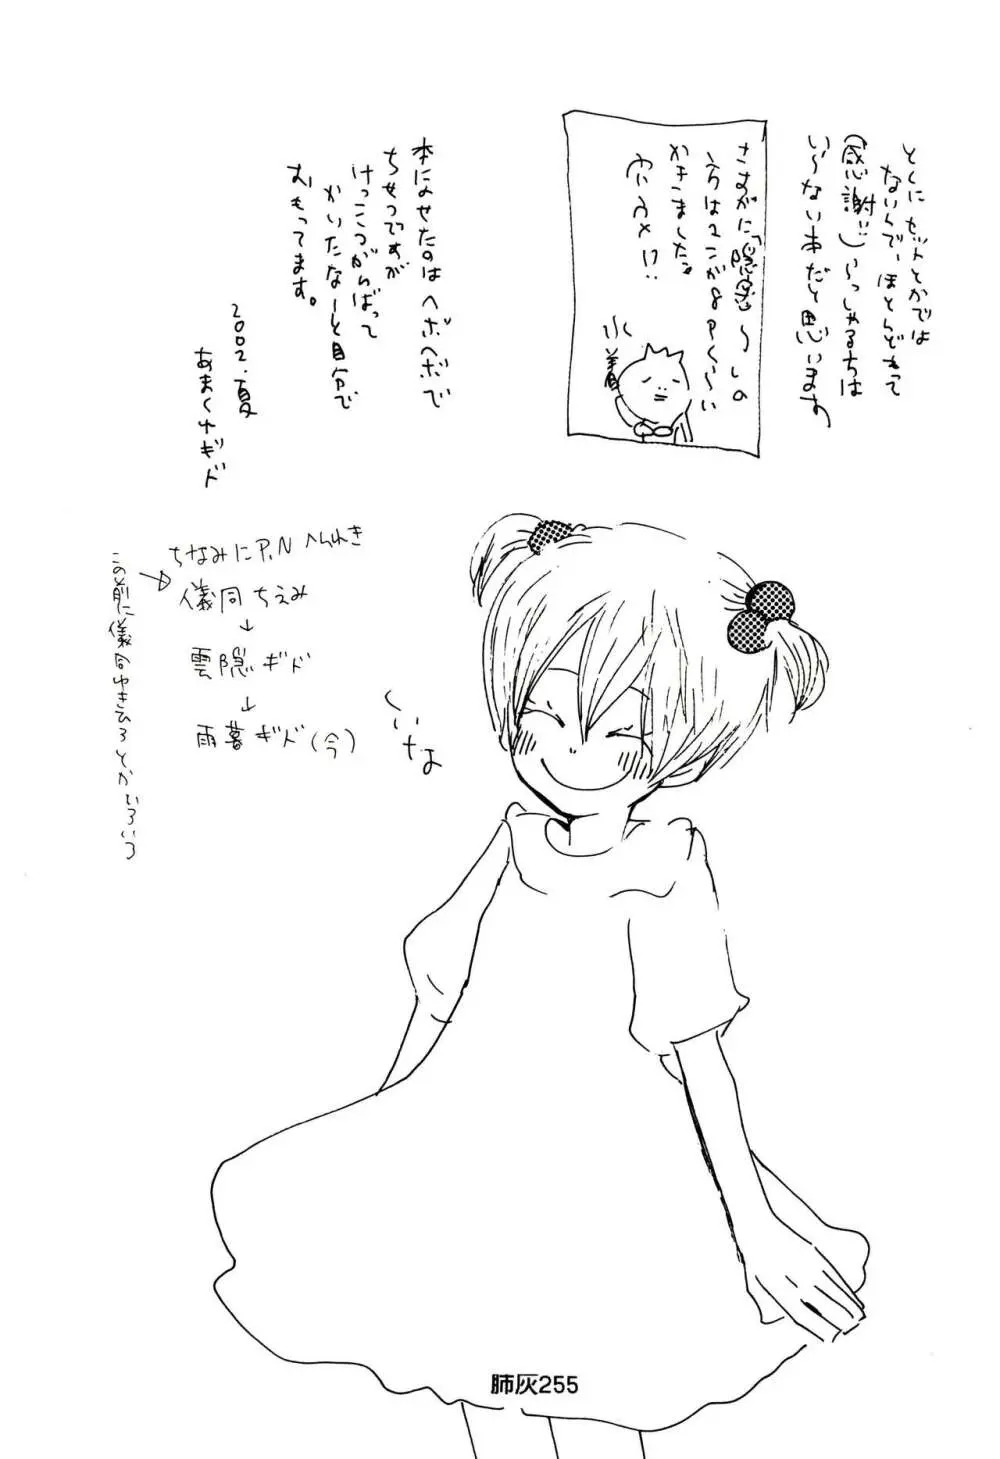 とくにセットとかでは
ないんで、ほとんど
「感謝!!」
い～ない本だと思います
さすがに「隠密～」の
方は2コが8Pくらい
かきこました
本によせたのはヘボヘボで
ちせつですが
けっこうがんばって
かいたなーと自分で
おもってます。
2002.夏
あまぐれギド
ちなみにP.N へんれき
儀同 ちえみ
↓
雲隠 ギド
↓
雨暮 ギド (今)
この前に儀同ゆきひろとかいろいろ
肺灰255